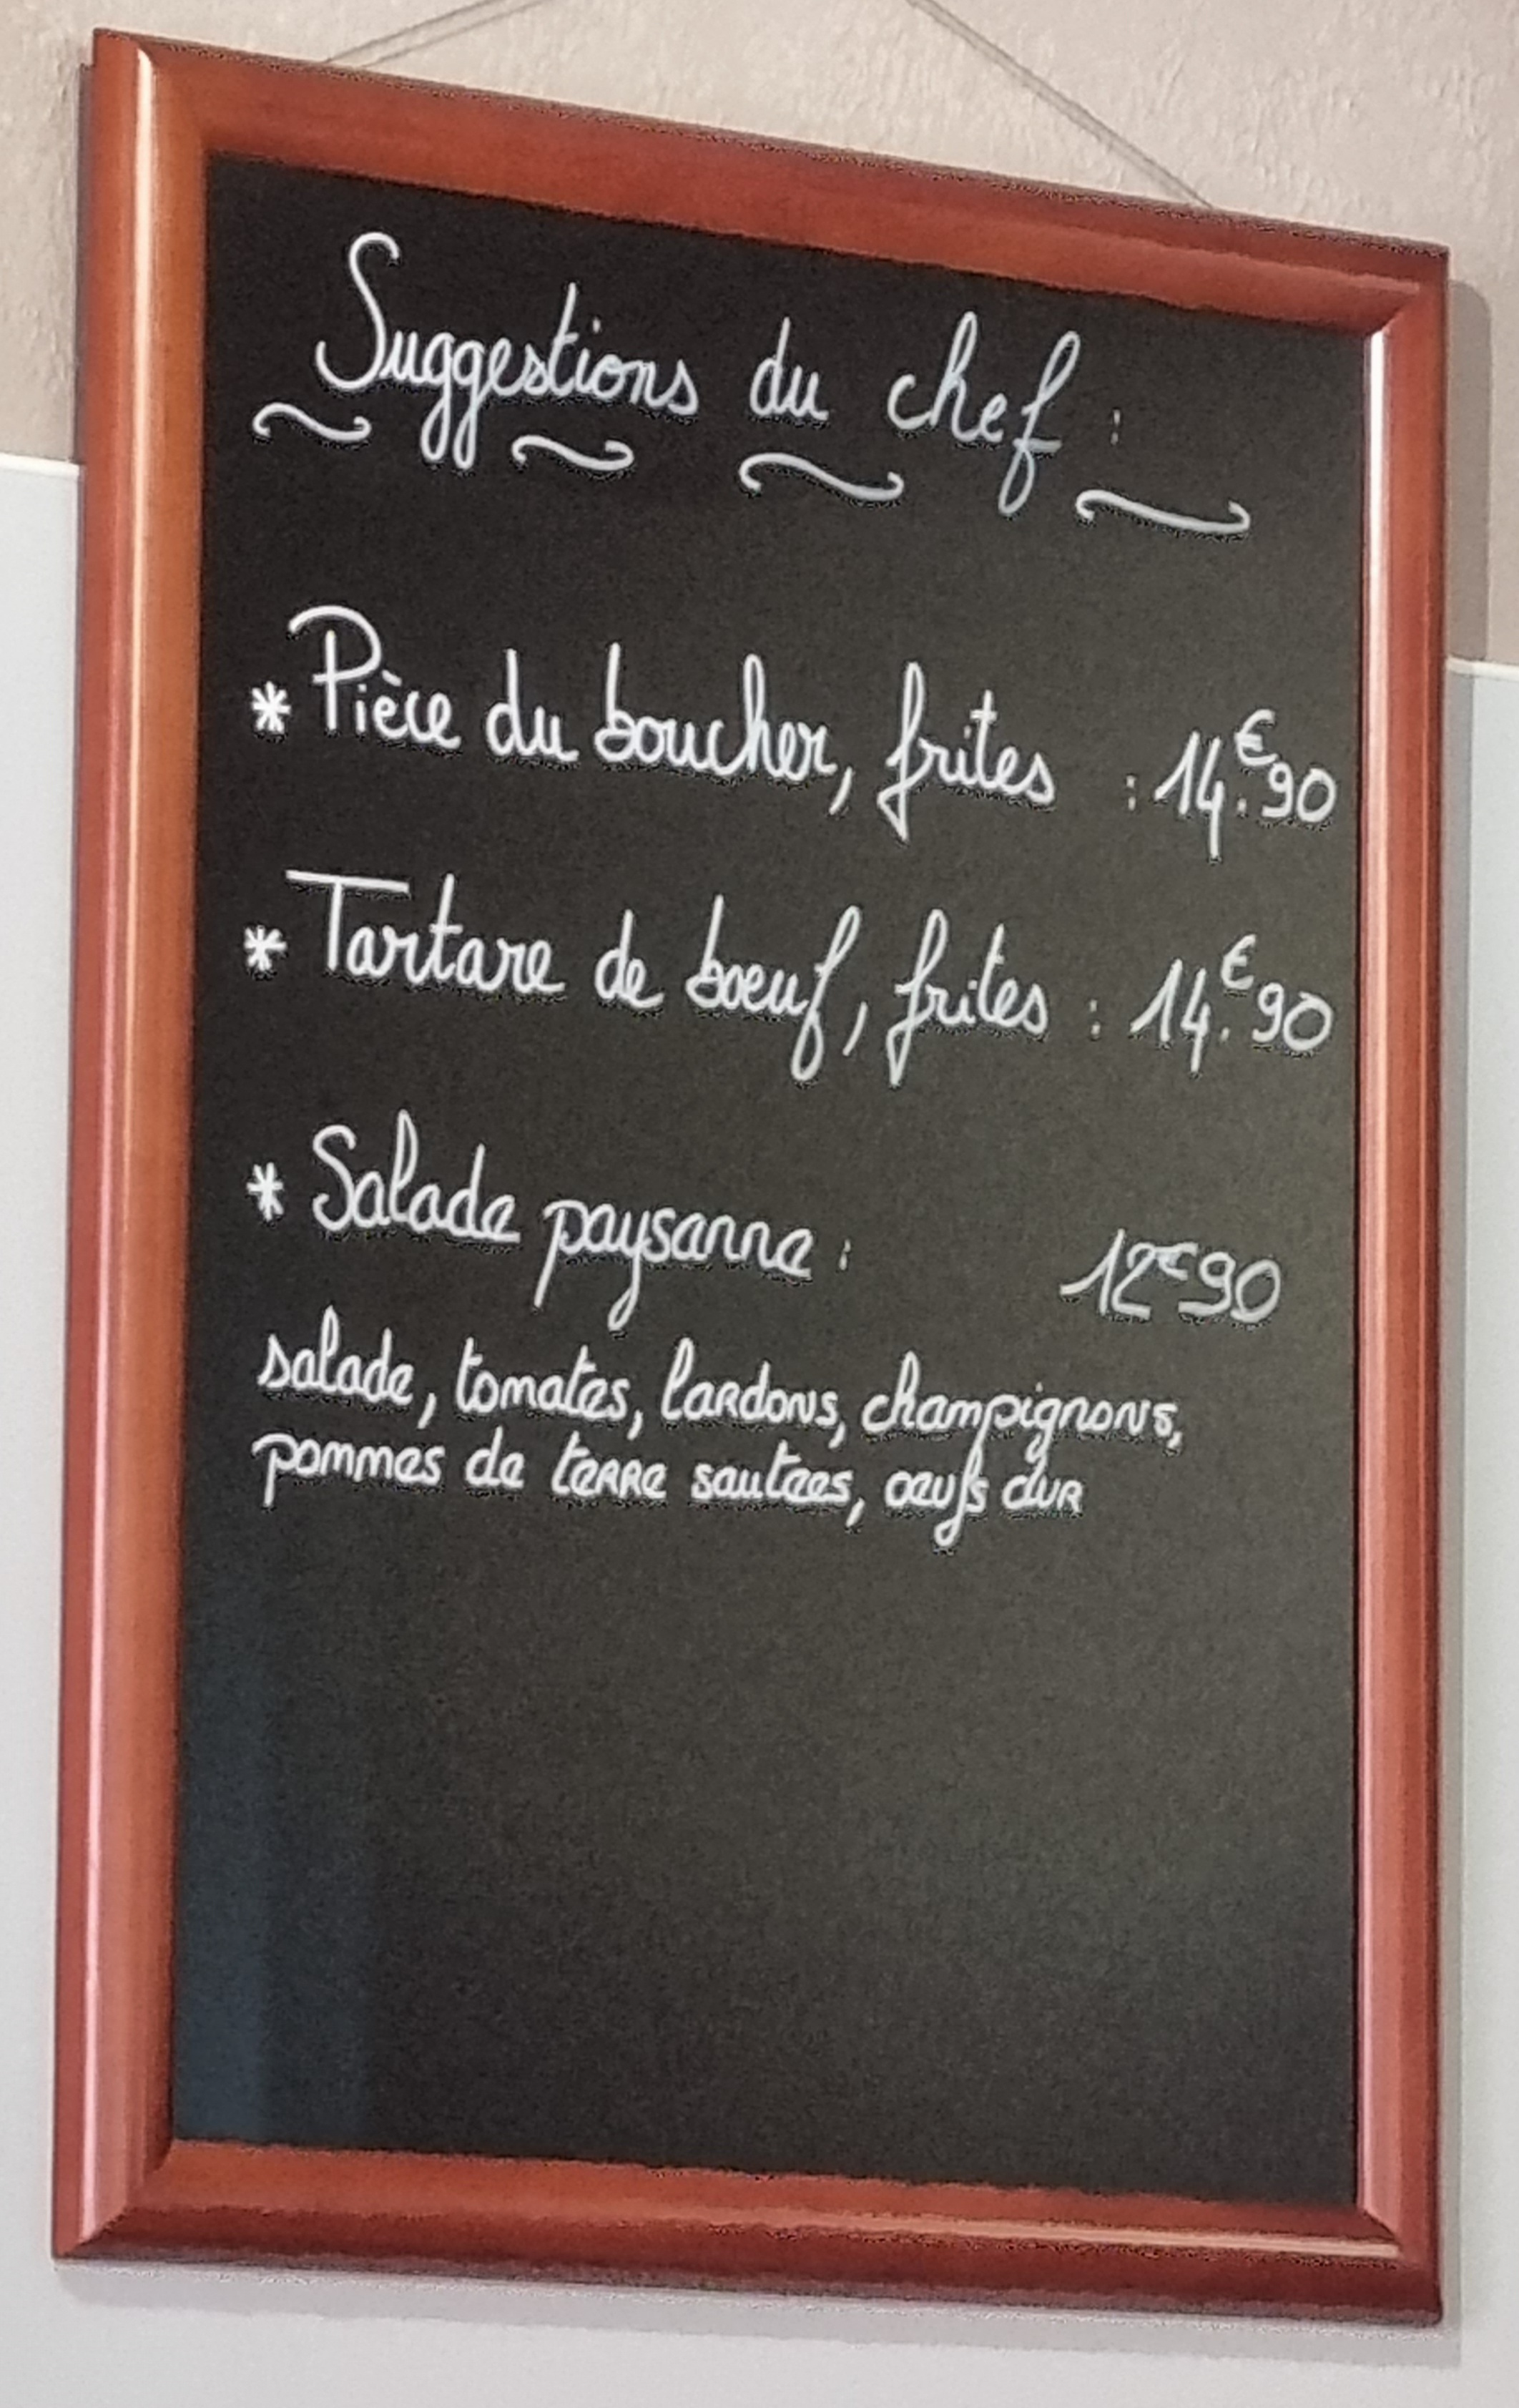 Suggestions du chef :
* Pièce du boucher, frites : 14.€90
* Tartare de boeuf, frites : 14.€90
* Salade paysanne : 12€90
salade, tomates, lardons, champignons,
pommes de terre sautees, oeufs dur